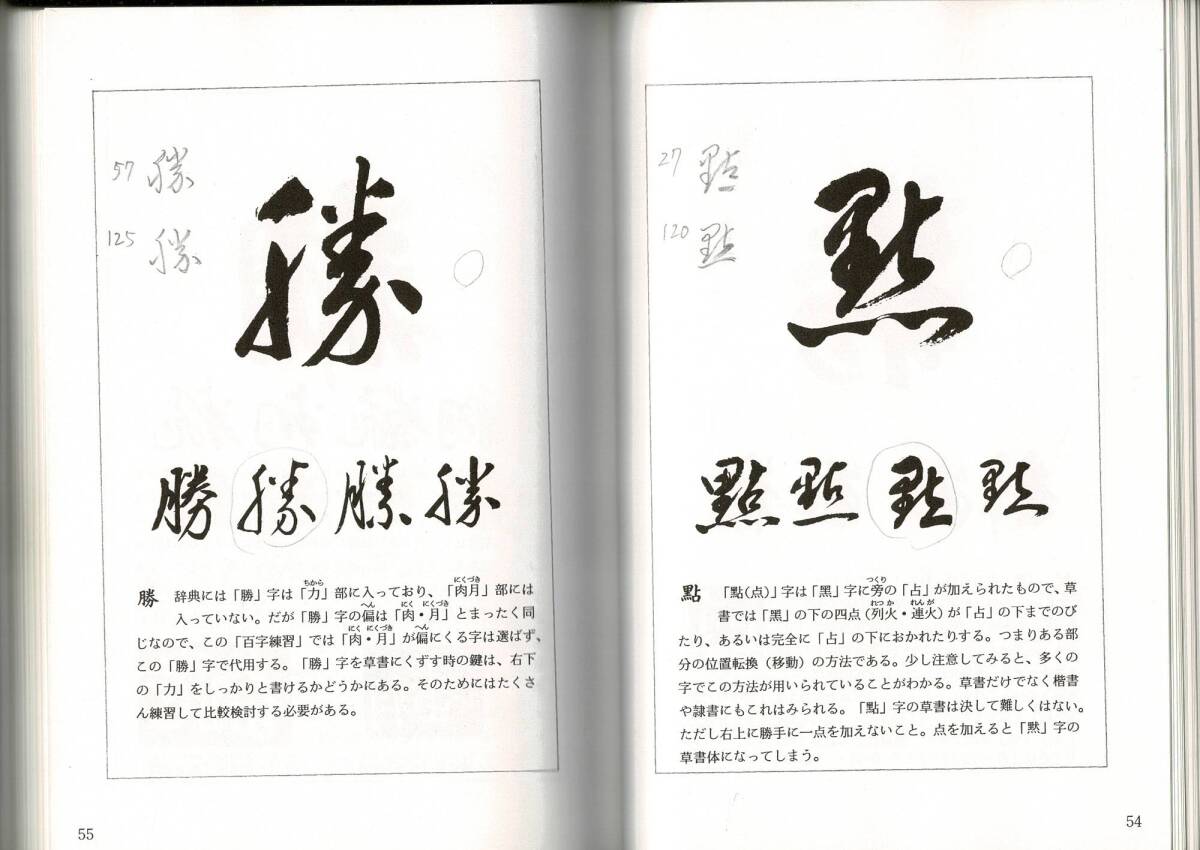 27 點
120 點
點
點 點 點 點
點 「點(点)」字は「黒」字に旁の「占」が加えられたもので、草
書では「黒」の下の四点(列火・連火)が「占」の下までのび
たり、あるいは完全に「占」の下におかれたりする。つまりある部
分の位置転換(移動)の方法である。少し注意してみると、多くの
字でこの方法が用いられていることがわかる。草書だけでなく楷書
や隷書にもこれはみられる。「點」字の草書は決して難しくはない。
ただし右上に勝手に一点を加えないこと。点を加えると「黙」字の
草書体になってしまう。
54
57 勝
125 勝
勝
勝 勝 勝 勝
勝 辞典には「勝」字は「力」部に入っており、「肉月」部には
入っていない。だが「勝」字の偏は「肉・月」とまったく同
じなので、この「百字練習」では「肉・月」が偏にくる字は選ばず、
この「勝」字で代用する。「勝」字を草書にくずす時の鍵は、右下
の「力」をしっかりと書けるかどうかにある。そのためにはたくさ
ん練習して比較検討する必要がある。
55